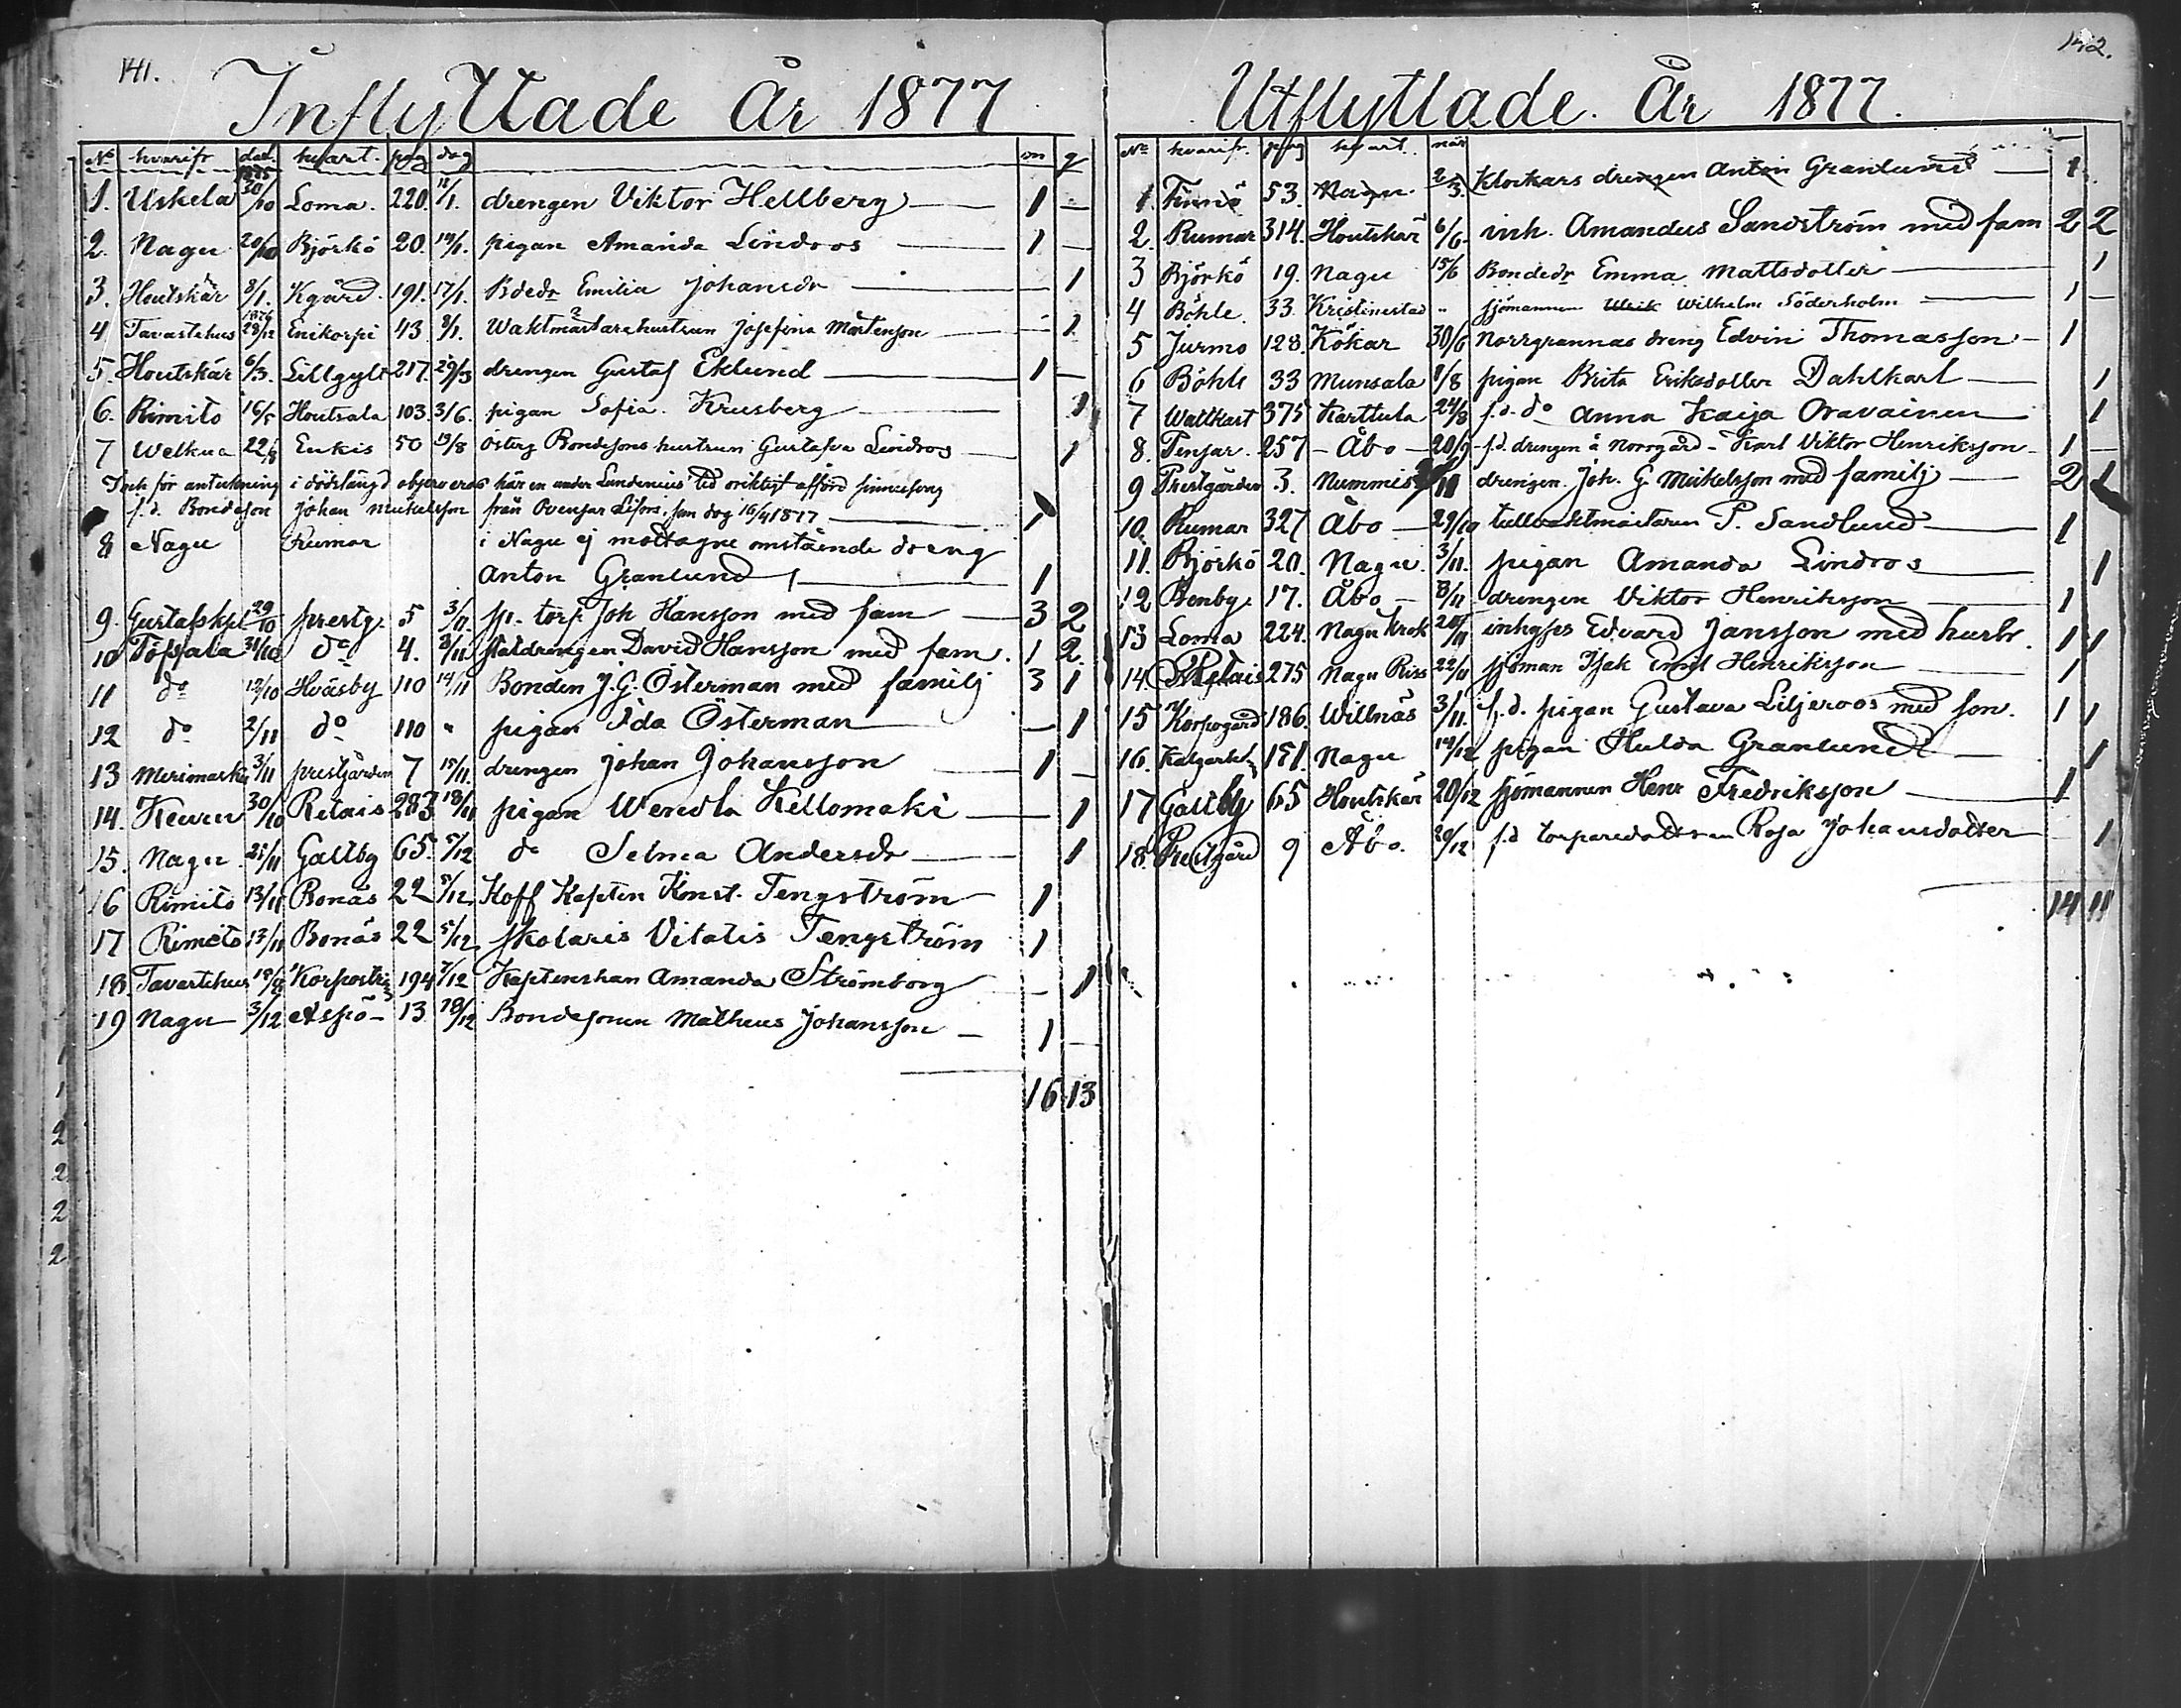 141.
Inflyttade År 1877
No hvarifr dat. hvart. pag dag m q
1875
1. Uskela 30/10 Loma. 220. 12/1. drengen Viktor Hellberg 1 —
2. Nagu 20/10 Björkö 20. 14/1. pigan Amanda Lindroos 1 —
3. Houtskär 8/1. Kgård. 191. 17/1. Bdedr Emilia Johansdr — 1
1876
4 Tavastehus 28/12 Enikorpi 43 9/1. Waktmästarehustrun Josefina Mårtenson — 1
5. Houtskär 6/3. Lillgylt 217. 29/3 drengen Gustaf Eklund 1 —
6. Rimito 16/5 Houtsala 103. 3/6. pigan Sofia Krusberg 1
7 Welkua 22/8 Enkis 50 19/8 österg Bondesons hustrun Gustafva Lindroos 1
Och för anteckning i dödslängd observeras här en under Lundenius' tid oriktigt afförd
f.d. Bondeson Johan Mickelsson från Ovensar Lifors, som dog 16/4 1877 1
8 Nagu Rumar i Nagu ej mottagne omstående dreng
Anton Granlund 1
9. Gustafskpl 29/10 prestg. 5 3/11. sp. torp Joh Hansson med fam 3 2
10 Töfsala 31/10 do 4. 3/11 staldrengen David Hansson med fam. 1 2.
11 do 12/10 Hväsby 110 14/11 Bonden J. G. Österman med familj 3 1
12 do 2/11 do 110 " pigan Ida Österman — 1
13 Merimasku 3/11 prestgården 7 15/11. drengen Johan Johansson 1 —
14. Keuru 30/10 Retais 283 18/11 pigan Wendla Kellomäki 1
15. Nagu 25/11 Galtby 65. 5/12 do Selma Andersdr 1
16 Rimito 13/11 Bonäs 22 5/12. Koff Kapten Konst. Tengström 1
17 Rimito 13/11 Bonäs 22 5/12 skolaris Vitalis Tengström 1
18. Tavastehus 18/8 Korpoström 194 7/12 Kaptenskan Amanda Strömborg — 1
19 Nagu 3/12 Aspö 13 18/12 Bondesonen Matheus Johansson 1 —
16 13
142.
Utflyttade. År 1877.
No hvarifr. pag hvart. när
1. Finnö 53. Nagu. 2/3. Klockars drengen Anton Granlund 1.
2. Rumar 314. Houtskär 6/6. inh. Amandus Sandström med fam 2 2
3 Björkö 19. Nagu 15/6 Bondedr Emma Mattsdotter 1
4 Böhle. 33. Kristinestad " sjömannen Ulrik Wilhelm Söderholm 1 —
5 Jurmo 128. Kökar 30/6 Norrgrannas dreng Edvin Thomasson 1
6 Böhle 33 Munsala 8/8 pigan Brita Eriksdotter Dahlkarl 1
7 Wattkast 375 Karttula 24/8 f.d. do Anna Kaija Oravainen 1
8. Tensar. 257 Åbo 20/9 f.d. drengen å Norrgård Karl Viktor Henriksson 1 —
9 Prestgården 3. Nummis drengen. Joh. G. Mickelsson med familj 2 1
10. Rumar 327 Åbo 29/10 tullvaktmästaren P. Sandlund 1
11. Björkö 20. Nagu. 3/11. pigan Amanda Lindroos 1
12 Benby. 17. Åbo 8/11 drengen Viktor Henriksson 1
13 Loma 224. Nagu Krok 20/11 inhyses Edvard Jansson med hustr. 1 1
14. Retais 275 Nagu Piss 22/11 sjöman Isak Emil Henriksson 1
15 Korpogård 186. Willnäs 3/11. f.d. pigan Gustava Liljeroos med son. 1 1
16. 181. Nagu 14/12 pigan Hulda Granlund 1
17 Galtby 65 Houtskär 20/12 sjömannen Henr Fredriksson 1
18. Prestgård 9 Åbo. 20/12 f.d torparedottren Rosa Johansdotter 1
14 11